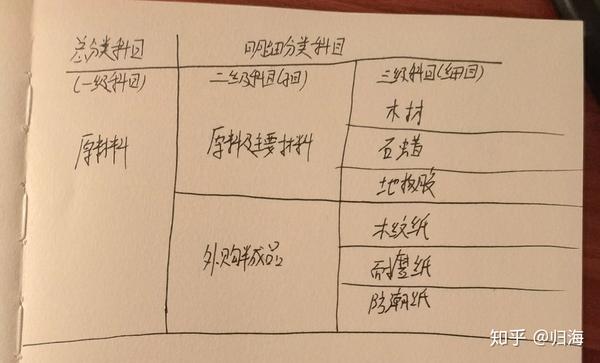 总分类科目 明细分类科目
(一级科目) 二级科目(子目) 三级科目(细目)
木材
原材料 原料及主要材料 石蜡
地板胶
木纹纸
外购半成品 耐磨纸
防潮纸
知乎 @归海